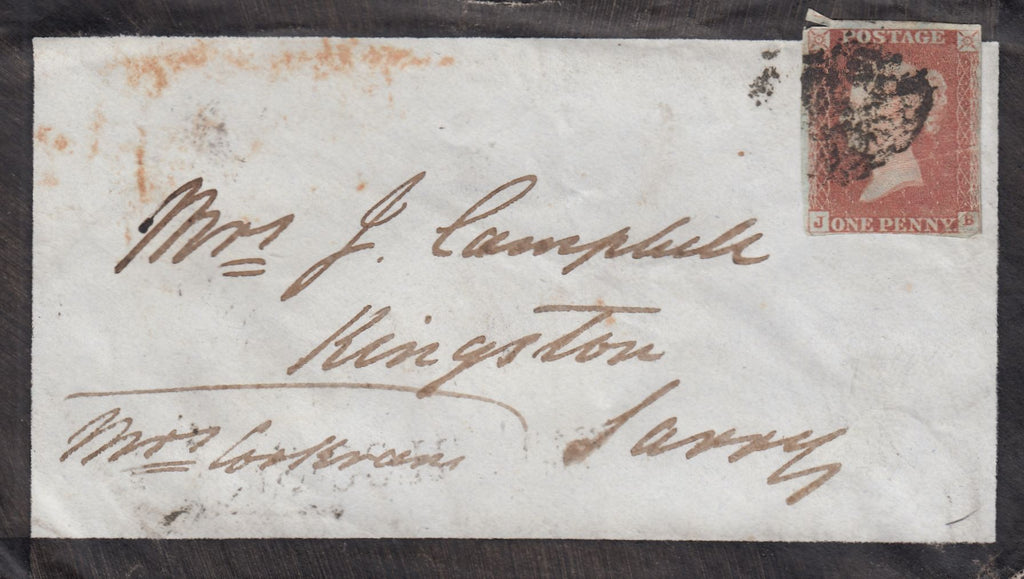 POSTAGE
J ONE PENNY B
Mrs J. Campbell
Kingston
Surry
Mrs Corkran